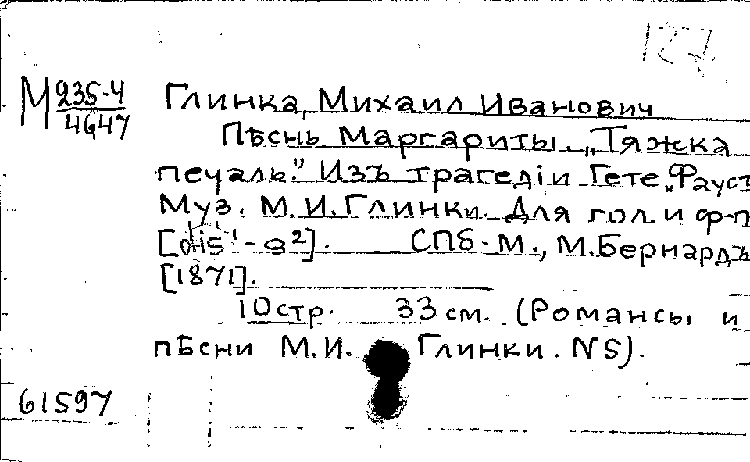 127
М 235-4 Глинка, Михаил Иванович
4647 Пѣснь Маргариты „Тяжка
печаль". Изъ трагедіи Гете „Фауст
Муз. М.И. Глинки. Для гол. и ф-п
[dis¹-a²]. СПб.-М., М. Бернардъ
[1871].
10 стр. 33 см. (Романсы и
пѣсни М.И. Глинки. N 5).
61597